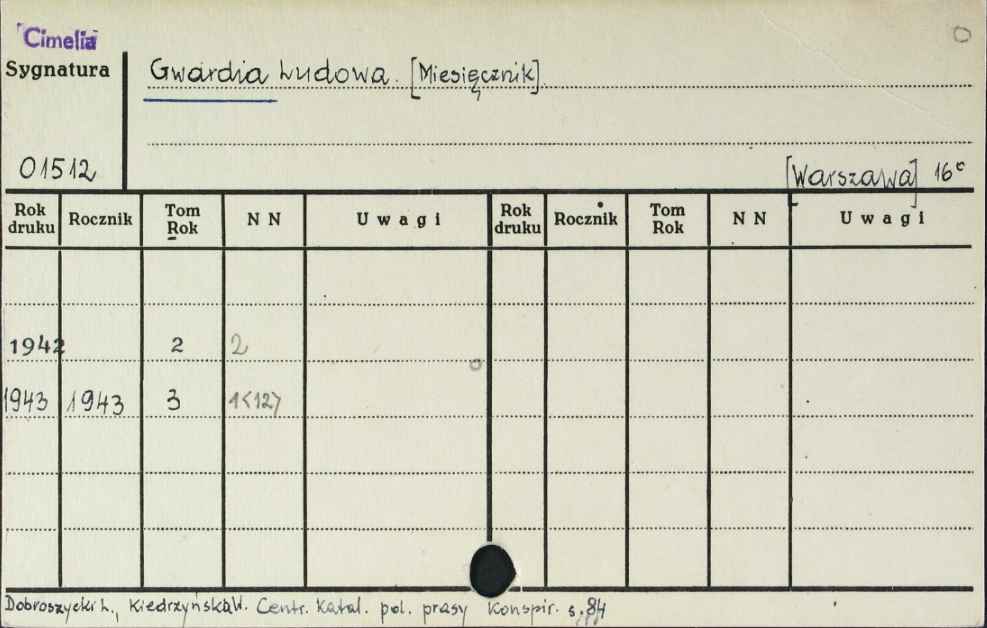 Cimelia
Sygnatura
Gwardia Ludowa. [Miesięcznik]
01512
[Warszawa] 16°
Rok druku Rocznik Tom Rok NN Uwagi Rok druku Rocznik Tom Rok NN Uwagi
1942 2 2
1943 1943 3 1<12>
Dobroszycki L., Kiedrzyńska W. Centr. Katal. pol. prasy Konspir. s. 84